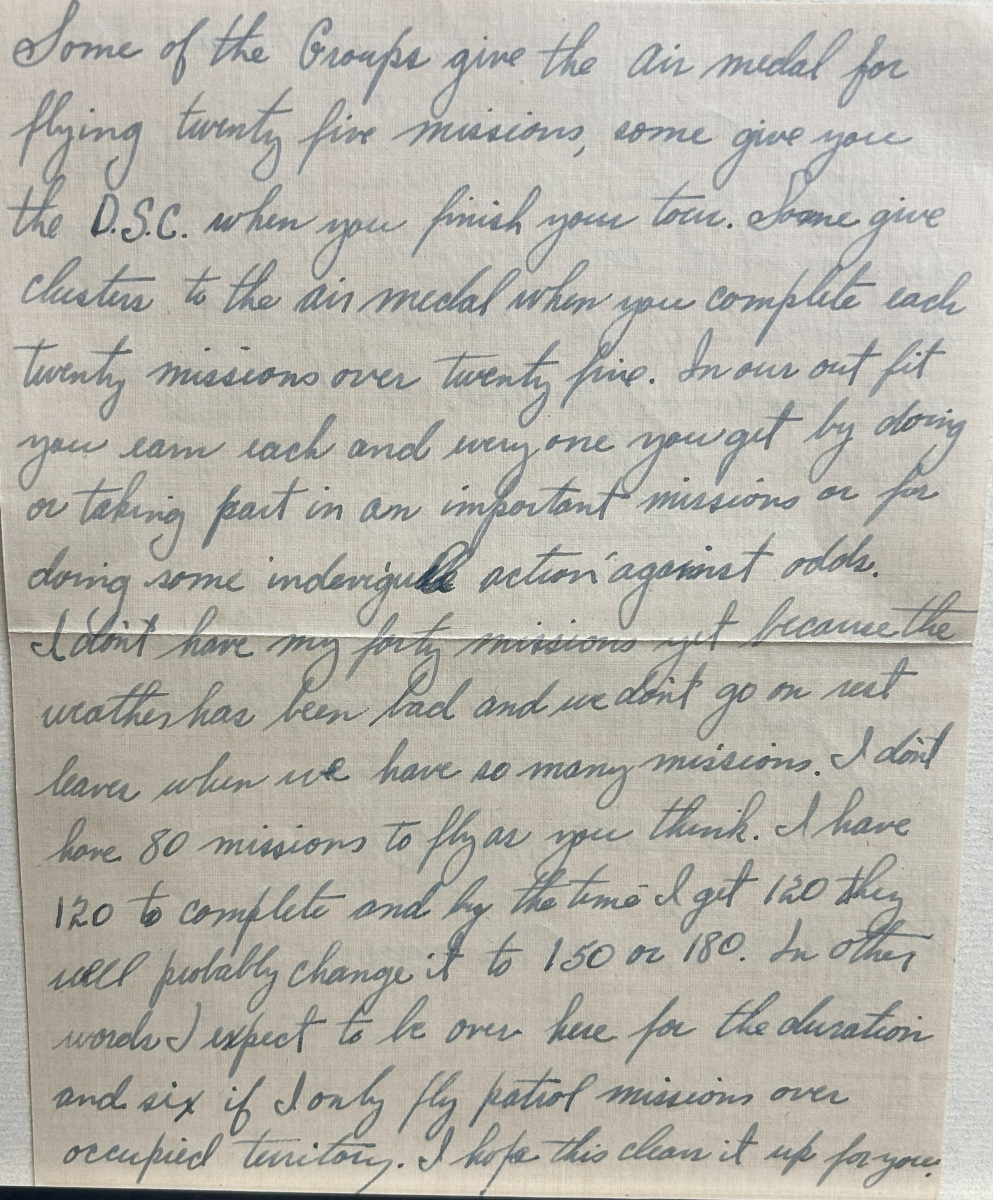 Some of the Groups give the air medal for
flying twenty five missions, some give you
the D.S.C. when you finish your tour. Some give
clusters to the air medal when you complete each
twenty missions over twenty five. In our out fit
you earn each and every one you get by doing
or taking part in an important missions or for
doing some action against odds.
I don't have my forty missions yet because the
weather has been bad and we don't go on rest
leaves when we have so many missions. I don't
have 80 missions to fly as you think. I have
120 to complete and by the time I get 120 they
will probably change it to 150 or 180. In other
words I expect to be over here for the duration
and six if I only fly patrol missions over
occupied territory. I hope this clears it up for you.